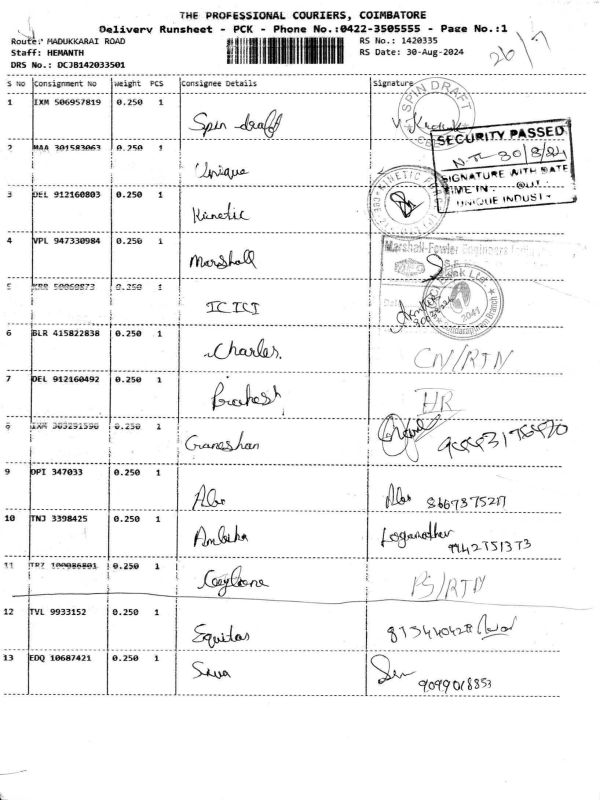 THE PROFESSIONAL COURIERS, COIMBATORE
Delivery Runsheet - PCK - Phone No.:0422-3505555 - Page No.:1
Route: MADUKKARAI ROAD
RS No.: 1420335
Staff: HEMANTH
RS Date: 30-Aug-2024
DRS No.: DCJB142033501
26/7
S No Consignment No Weight PCS Consignee Details Signature
1 IXM 506957819 0.250 1 Spin draft
SPIN DRAFT
2 MAA 301583063 0.250 1 Unique
SECURITY PASSED
30/8/24
SIGNATURE WITH DATE
TIME IN : OUT
UNIQUE INDUST
3 DEL 912160803 0.250 1 Kinetic
KINETIC
4 VPL 947330984 0.250 1 Marshall
Marshall-Fowler Engineers
5 KRR 50060873 0.250 1 ICICI
Bank Ltd
6 BLR 415822838 0.250 1 Charles. CN/RTN
7 DEL 912160492 0.250 1 Prakash HR
8 IXM 303291596 0.250 1 Ganeshan
9 OPI 347033 0.250 1 Abo Abo 8667875217
10 TNJ 3398425 0.250 1 Ambika Loganathan
9942751373
11 TRZ 100086801 0.250 1 PS/RTN
12 TVL 9933152 0.250 1 Equitas
13 EDQ 10687421 0.250 1 Siva
9099018853